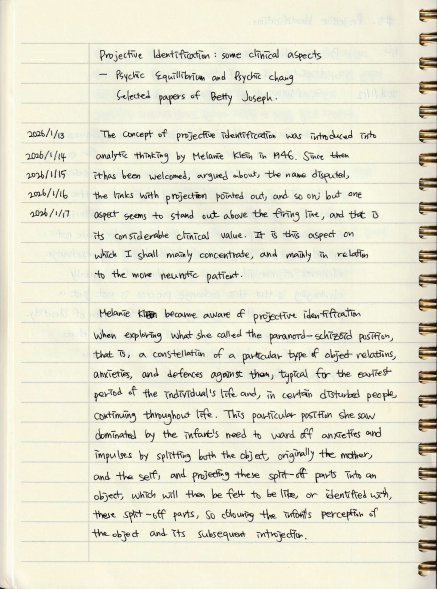 Projective Identification : some clinical aspects
— Psychic Equilibrium and Psychic chang
Selected papers of Betty Joseph.
2026/1/13 The concept of projective identification was introduced into
2026/1/14 analytic thinking by Melanie Klein in 1946. Since then
2026/1/15 it has been welcomed, argued about, the name disputed,
2026/1/16 the links with projection pointed out, and so on; but one
2026/1/17 aspect seems to stand out above the firing line, and that is
its considerable clinical value. It is this aspect on
which I shall mainly concentrate, and mainly in relation
to the more neurotic patient.
Melanie Klein became aware of projective identification
when exploring what she called the paranoid-schizoid position,
that is, a constellation of a particular type of object relations,
anxieties, and defences against them, typical for the earliest
period of the individual's life and, in certain disturbed people,
continuing throughout life. This particular position she saw
dominated by the infant's need to ward off anxieties and
impulses by splitting both the object, originally the mother,
and the self, and projecting these split-off parts into an
object, which will then be felt to be like, or identified with,
these split-off parts, so colouring the infant's perception of
the object and its subsequent introjection.